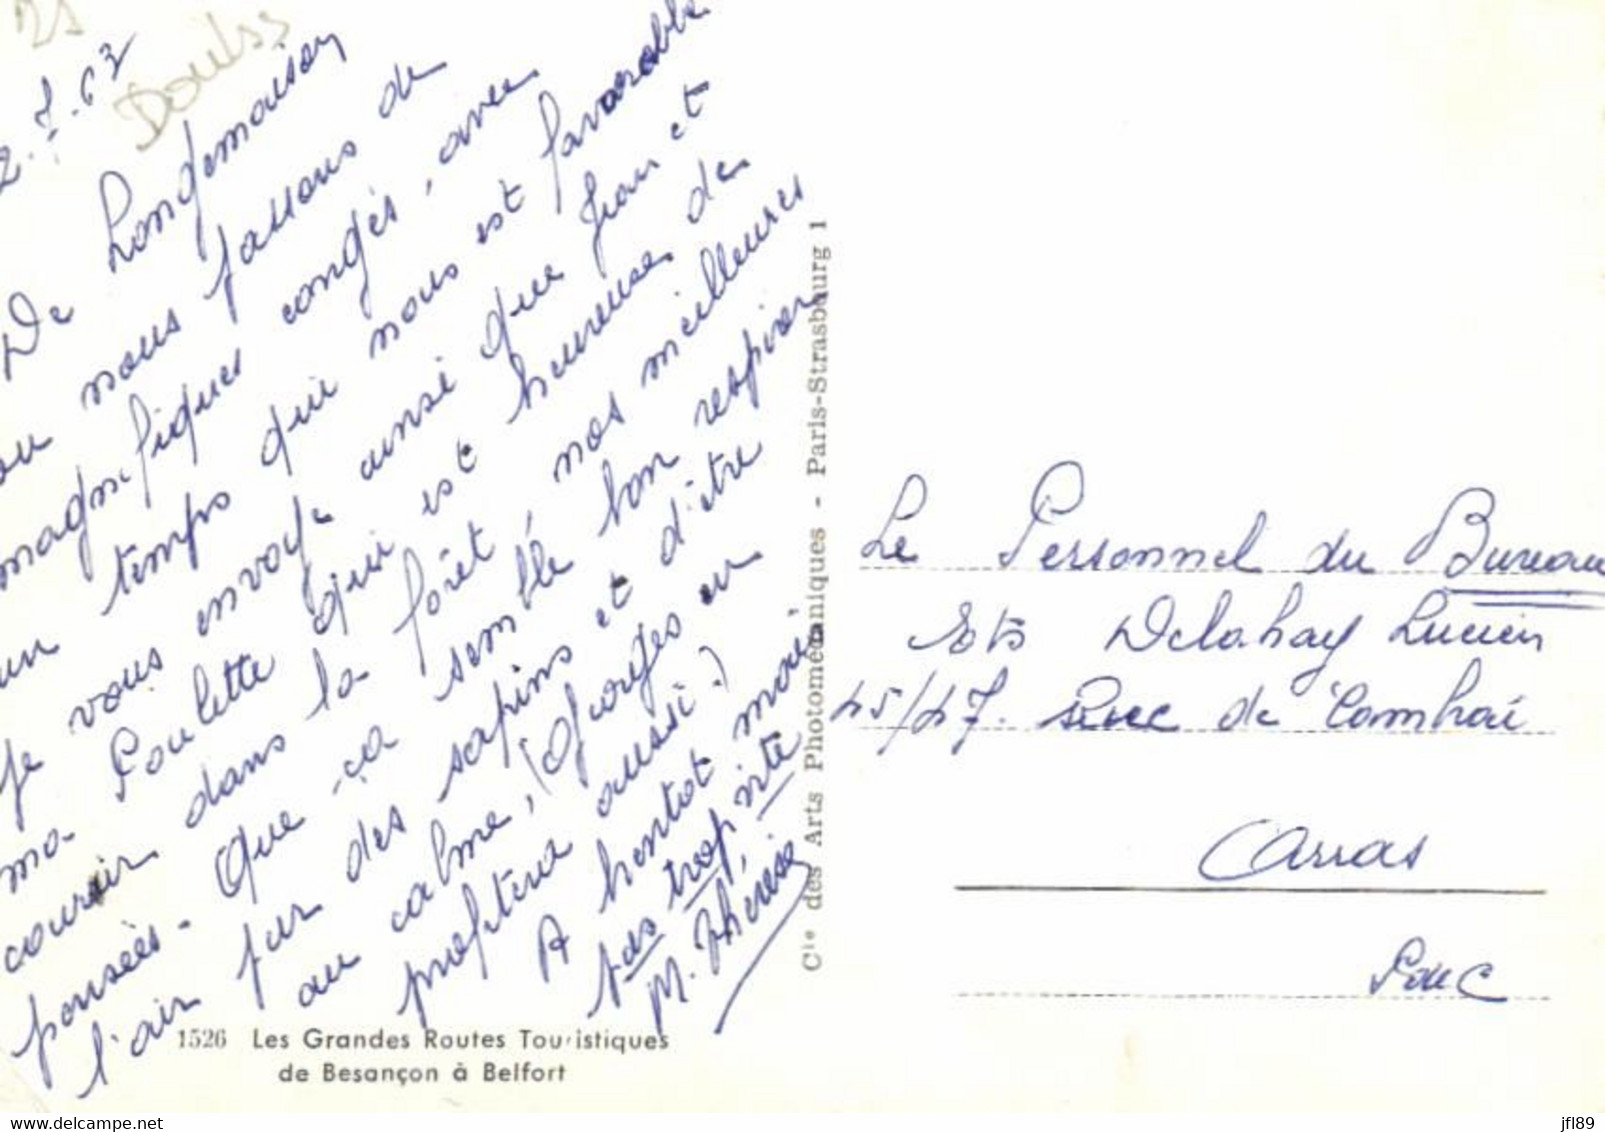 25
Doubs
2.7.63
De Longemaison
où nous passons de
magnifiques congés, avec
un temps qui nous est favorable
Je vous envoye ainsi que Jean et
ma Poulette qui est heureuse de
courir dans la forêt, nos meilleures
pensées - Que ça semble bon respirer
l'air pur des sapins et d'être
au calme, (Georges en
profitera aussi?)
A bientôt mais
pas trop vite
M. Thérèse
1526 Les Grandes Routes Touristiques
de Besançon à Belfort
Cie des Arts Photomécaniques - Paris-Strasbourg 1
Le Personnel du Bureau
Ets Delahay Lucien
45/47. Rue de Cambrai
Arras
P de C
www.delcampe.net
jfl89